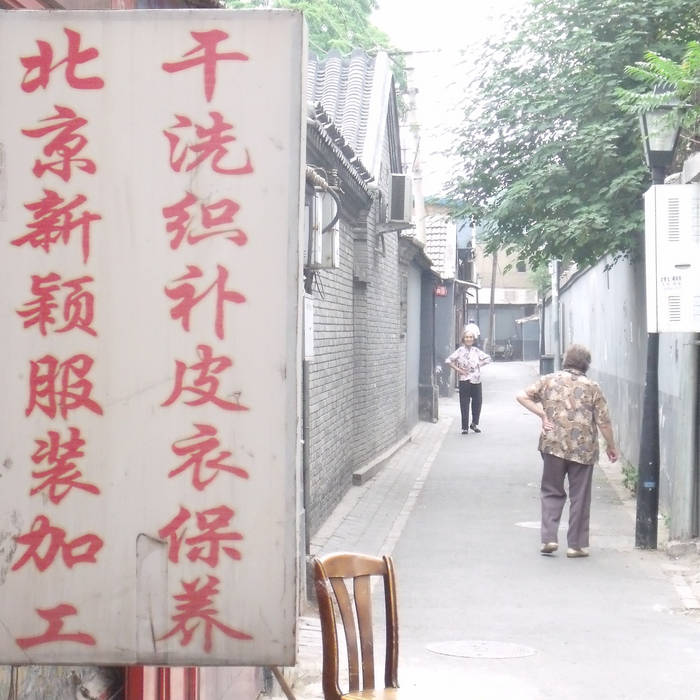 北京新颖服装加工
干洗织补皮衣保养